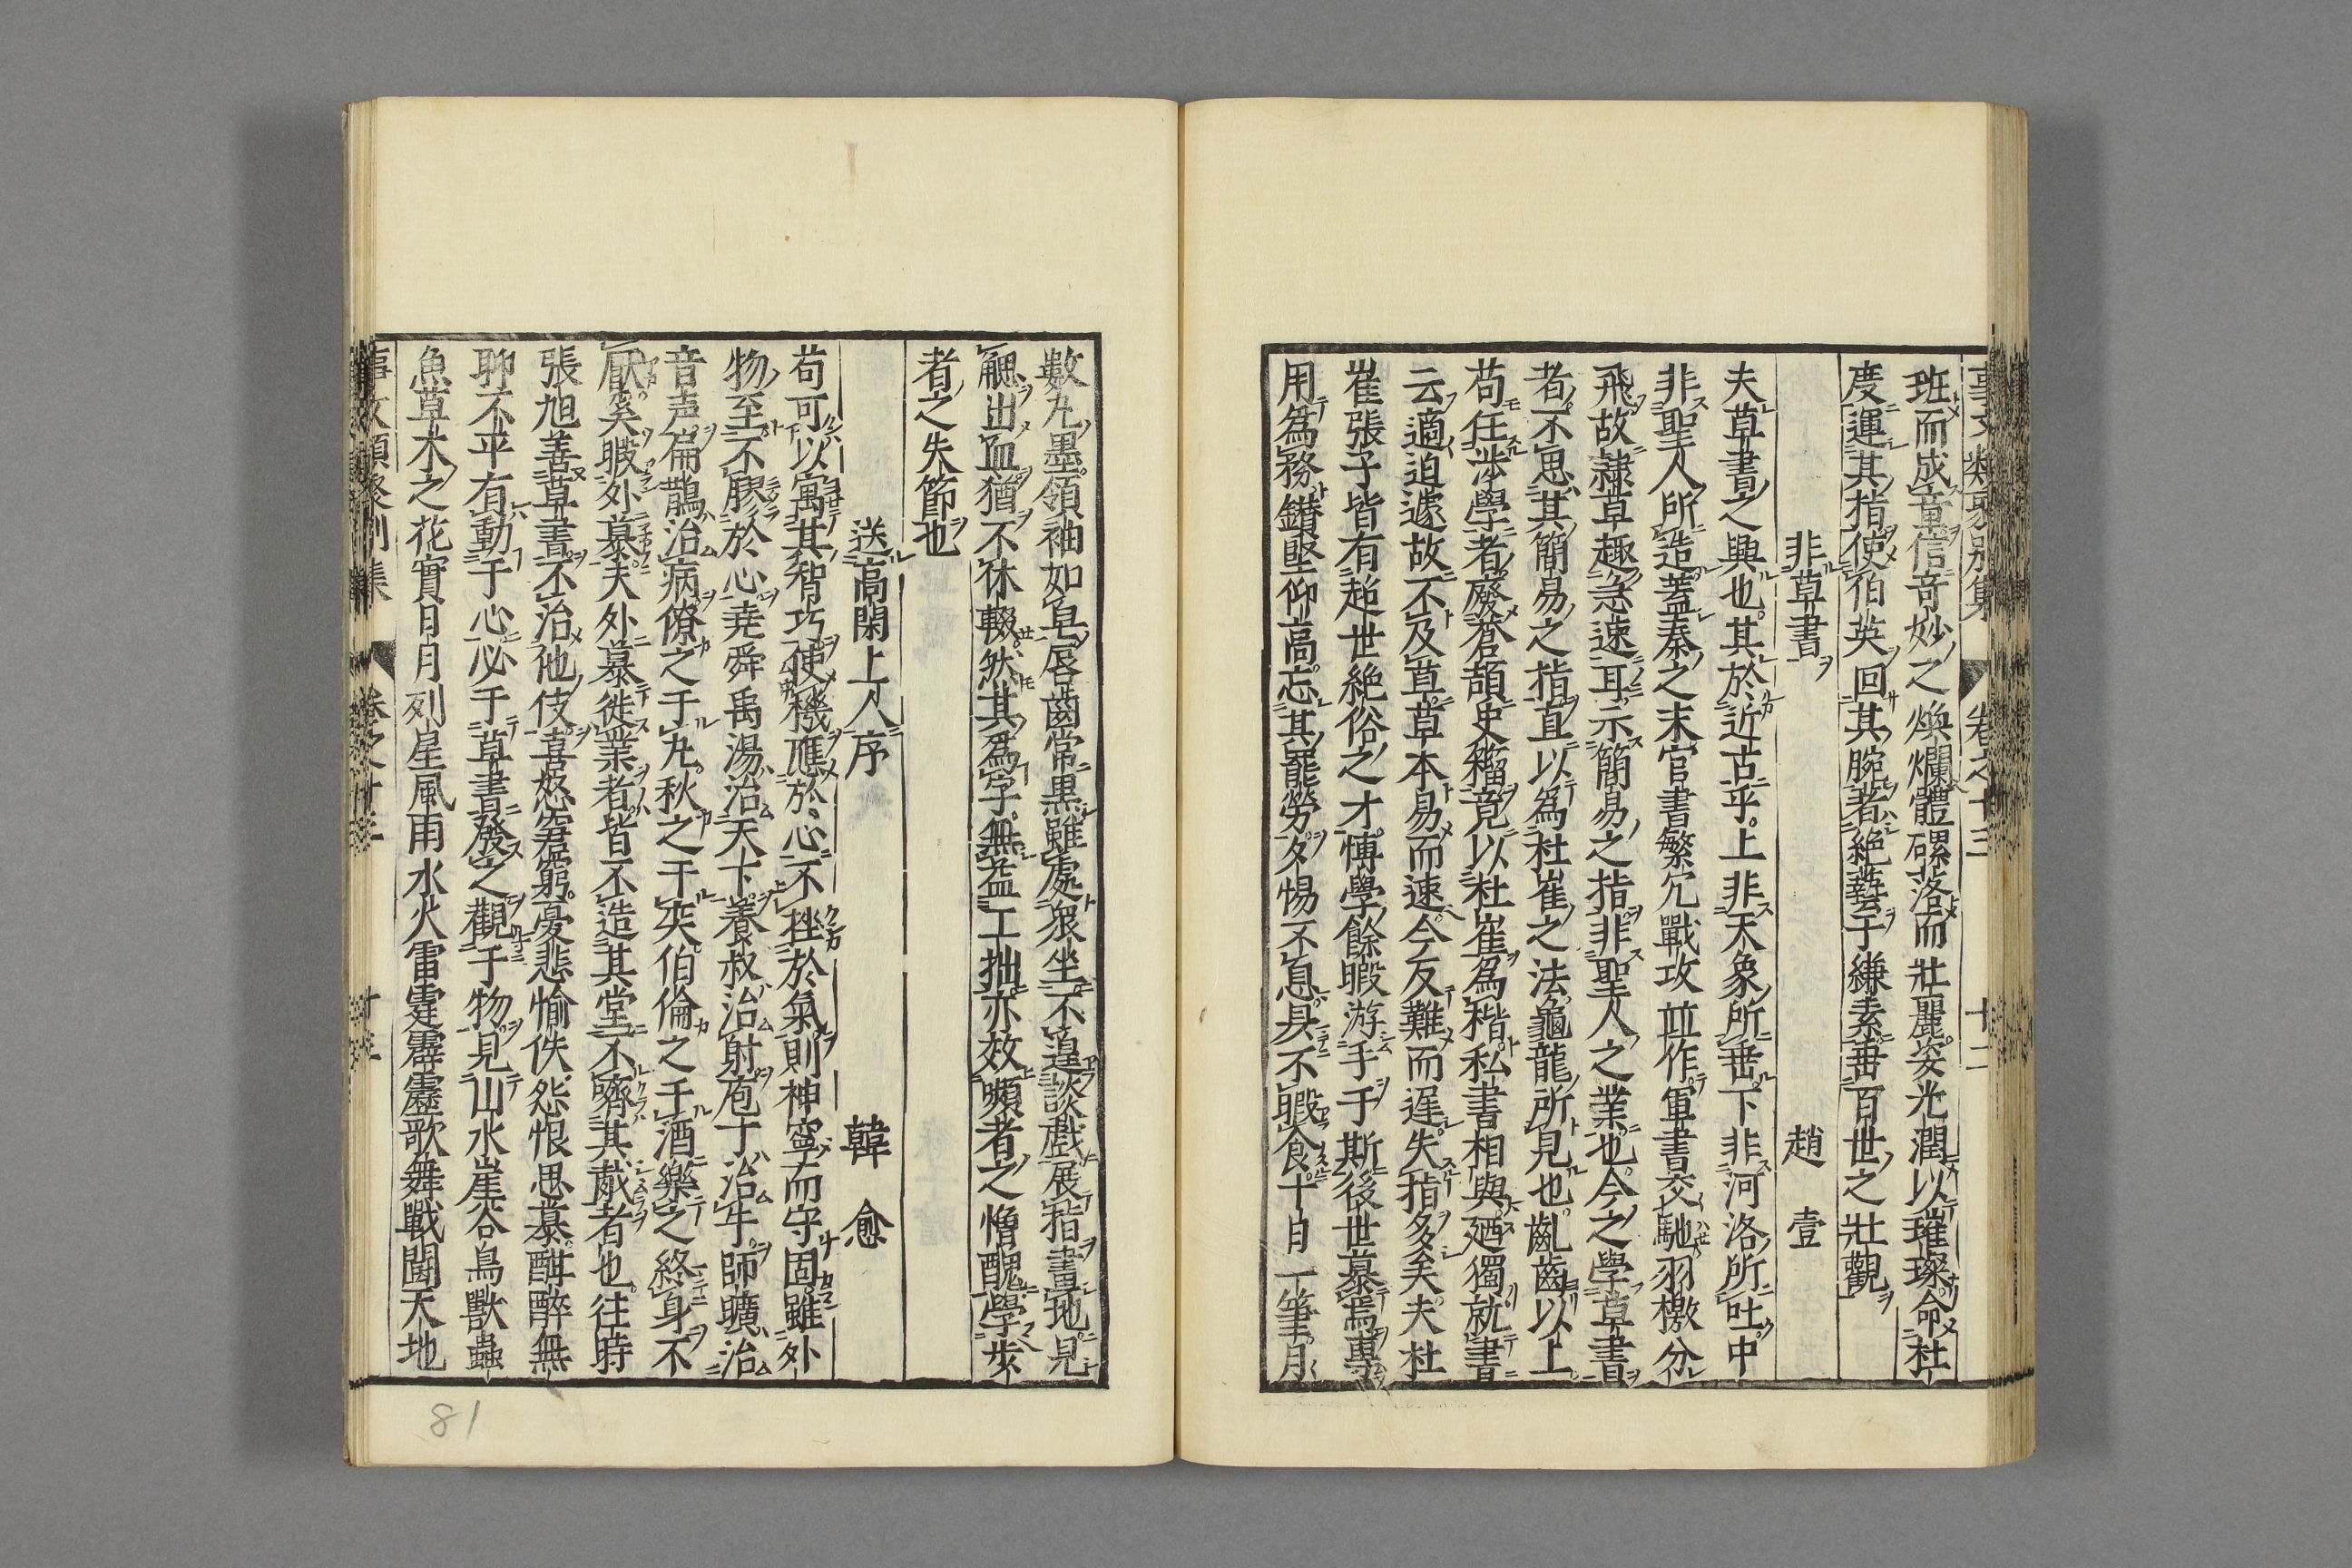 事文類聚別集 卷之十三 十二
班而成章信奇妙之煥爛體磥落而壯麗姿光潤以璀璨命杜
度運其指使伯英回其腕著絶藝于縑素垂百世之壯觀
非草書 趙壹
夫草書之興也其於近古乎上非天象所垂下非河洛所吐中
非聖人所造蓋秦之末官書繁冗戰攻並作軍書交馳羽檄分
飛故隷草趣急速耳示簡易之指非聖人之業也今之學草書
者不思其簡易之指直以為杜崔之法龜龍所見也齓齒以上
苟任涉學者廢蒼頡史籕竟以杜崔為楷私書相與廼獨就書
云適迫遽故不及草草本易而速今反難而遲失指多矣夫杜
崔張子皆有超世絶俗之才愽學餘暇游手于斯後世慕焉專
用為務鑚堅仰高忘其罷勞夕惕不息具不暇食十日一筆月
數丸墨領袖如皂唇齒常黒雖處衆坐不遑談戲展指畫地見
䚡出血猶不休輟然其為字無益工拙亦效嚬者之憎醜學步
者之失節也
送高閑上人序 韓愈
苟可以寓其智巧使機應於心不挫於氣則神寧而守固雖外
物至不膠於心堯舜禹湯治天下養叔治射庖丁治牛師曠治
音声扁鵲治病僚之于丸秋之于奕伯倫之于酒樂之終身不
厭奚暇外慕夫外慕徙業者皆不造其堂不嚌其胾者也往時
張旭善草書不治他伎喜怒窘窮憂悲愉佚怨恨思慕酣醉無
聊不平有動于心必于草書發之觀于物見山水崖谷鳥獸蟲
魚草木之花實日月列星風雨水火雷霆霹靂歌舞戰鬪天地
事文類聚別集 卷之十三
81